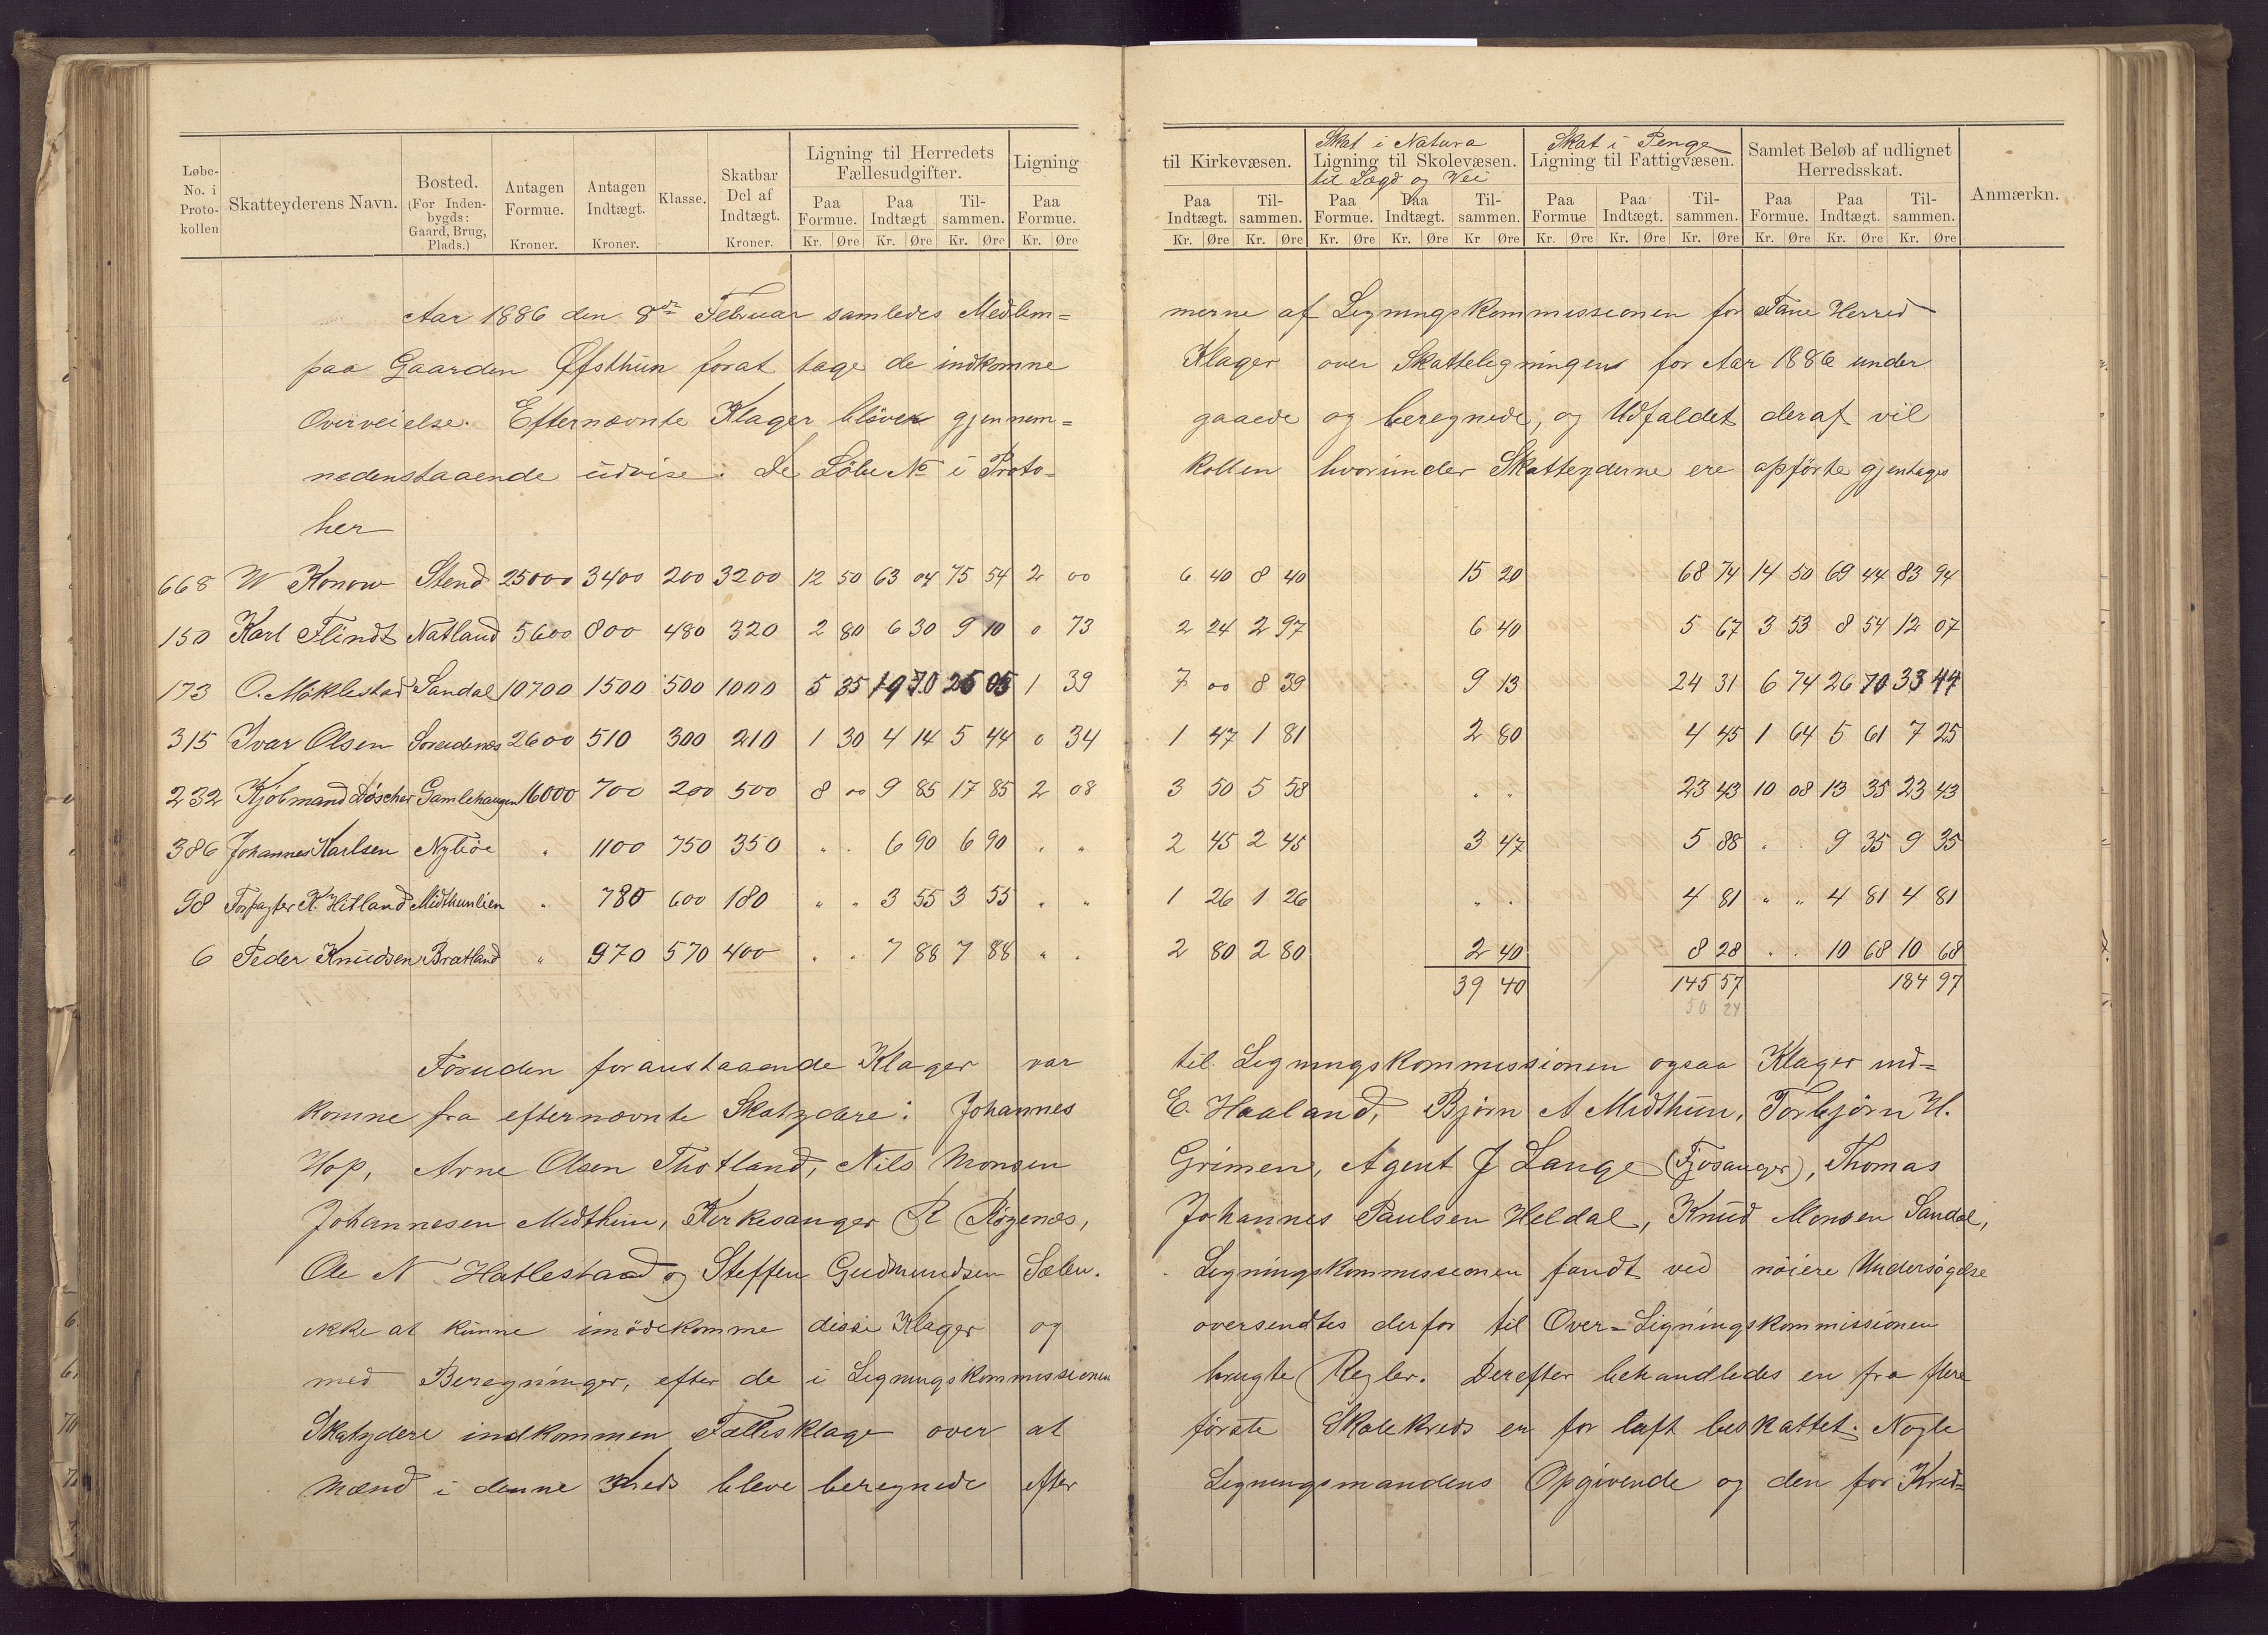 Løbe-No. i Protokollen | Skatteyderens Navn. | Bosted. (For Indenbygds: Gaard, Brug, Plads.) | Antagen Formue. Kroner. | Antagen Indtægt. Kroner. | Klasse. | Skatbar Del af Indtægt. Kroner. | Ligning til Herredets Fællesudgifter. | Ligning til Kirkevæsen. | Skat i Natura Ligning til Skolevæsen. til Lægd og Vei | Skat i Penge Ligning til Fattigvæsen. | Samlet Beløb af udlignet Herredsskat. | Anmærkn.
Paa Formue. | Paa Indtægt | Til-sammen. | Paa Formue. | Paa Indtægt. | Til-sammen. | Paa Formue. | Paa Indtægt. | Til-sammen. | Paa Formue | Paa Indtægt. | Til-sammen. | Paa Formue. | Paa Indtægt. | Til-sammen.
Kr. Øre | Kr. Øre | Kr. Øre | Kr. Øre | Kr. Øre | Kr. Øre | Kr. Øre | Kr. Øre | Kr Øre | Kr. Øre | Kr. Øre | Kr. Øre | Kr. Øre | Kr. Øre | Kr. Øre
Aar 1886 den 8de Februar samledes Medlem= merne af Ligningskommissionen for Fane Herred
paa Gaarden Øfsthun forat tage de indkomne Klager over Skatteligningen for Aar 1886 under
Overveielse. Efternævnte Klager bløve gjennem= gaaede og beregnede, og Udfaldet deraf vil
nedenstaaende udvise. De Løbe No i Proto- kollen hvorunder Skatteyderne ere opførte gjentages
her
668 W Konow Stend 25000 3400 200 3200 12 50 63 04 75 54 2 00 6 40 8 40 15 20 68 74 14 50 69 44 83 94
150 Karl Flindt Natland 5600 800 480 320 2 80 6 30 9 10 0 73 2 24 2 97 6 40 5 67 3 53 8 54 12 07
173 O. Møklestad Sandal 10700 1500 500 1000 5 35 19 70 25 05 1 39 7 00 8 39 9 13 24 31 6 74 26 70 33 44
315 Ivar Olsen Soreidenæs 2600 510 300 210 1 30 4 14 5 44 0 34 1 47 1 81 2 80 4 45 1 64 5 61 7 25
232 Kjøbmand Døscher Gamlehaugen 16000 700 200 500 8 00 9 85 17 85 2 08 3 50 5 58 " " 23 43 10 08 13 35 23 43
386 Johannes Karlsen Nybøe " 1100 750 350 " " 6 90 6 90 " " 2 45 2 45 3 47 5 88 " " 9 35 9 35
98 Forpagter K. Hitland Midthunlien " 780 600 180 " " 3 55 3 55 " " 1 26 1 26 " " 4 81 " " 4 81 4 81
6 Peder Knudsen Bratland " 970 570 400 " " 7 88 7 88 " " 2 80 2 80 2 40 8 28 " " 10 68 10 68
39 40 145 57 184 97
50 24
Foruden foranstaaende Klager var til Ligningskommissionen ogsaa Klager ind=
komne fra efternævnte Skatydere: Johannes E. Haaland, Bjørn A Midthun, Torbjørn H.
Hop, Arne Olsen Thotland, Nils Monsen Grimen, Agent J Lange (Fjøsanger), Thomas
Johannesen Midthun, Kirkesanger R Røgenæs, Johannes Paulsen Heldal, Knud Monsen Sandal,
Ole N Hatlestaad og Steffen Gudmundsen Sælen. Ligningskommissionen fandt ved nøiere Undersøgelse
ikke at kunne imødekomme disse Klager og oversendtes derfor til Over=Ligningskommissionen
med Beregninger, efter de i Ligningskommissionen brugte Regler. Derefter behandledes en fra flere
Skatydere indkommen Fællesklage over at første Skolekreds er for laft beskattet. Nogle
Mænd i denne Kreds bleve beregnede efter Ligningsmandens Opgivende og den for Kred=